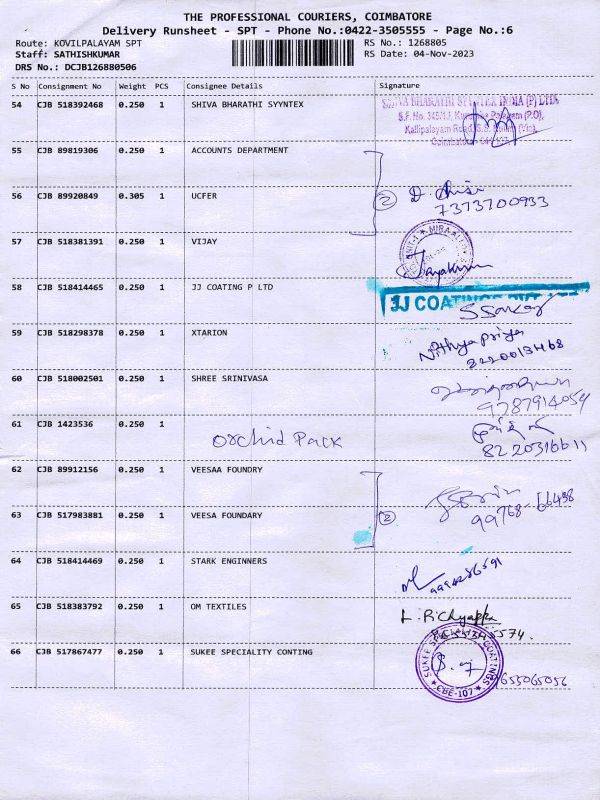 THE PROFESSIONAL COURIERS, COIMBATORE
Delivery Runsheet - SPT - Phone No.:0422-3505555 - Page No.:6
Route: KOVILPALAYAM SPT RS No.: 1268805
Staff: SATHISHKUMAR RS Date: 04-Nov-2023
DRS No.: DCJB126880506
S No Consignment No Weight PCS Consignee Details Signature
54 CJB 518392468 0.250 1 SHIVA BHARATHI SYYNTEX
SHIVA BHARATHI SYNTEX INDIA (P) LTD.
55 CJB 89819306 0.250 1 ACCOUNTS DEPARTMENT
56 CJB 89920849 0.305 1 UCFER 2 D.
7373700933
57 CJB 518381391 0.250 1 VIJAY
Jayakumar
58 CJB 518414465 0.250 1 JJ COATING P LTD JJ COATINGS
59 CJB 518298378 0.250 1 XTARION Nithya priya
8220013468
60 CJB 518002501 0.250 1 SHREE SRINIVASA
9787914054
61 CJB 1423536 0.250 1 Orchid Pack
8220316611
62 CJB 89912156 0.250 1 VEESAA FOUNDRY
63 CJB 517983881 0.250 1 VEESA FOUNDARY 2 99768-66498
64 CJB 518414469 0.250 1 STARK ENGINNERS
65 CJB 518383792 0.250 1 OM TEXTILES L. Richyappa
66 CJB 517867477 0.250 1 SUKEE SPECIALITY CONTING
SUKEE COATINGS
CBE-107
655065056